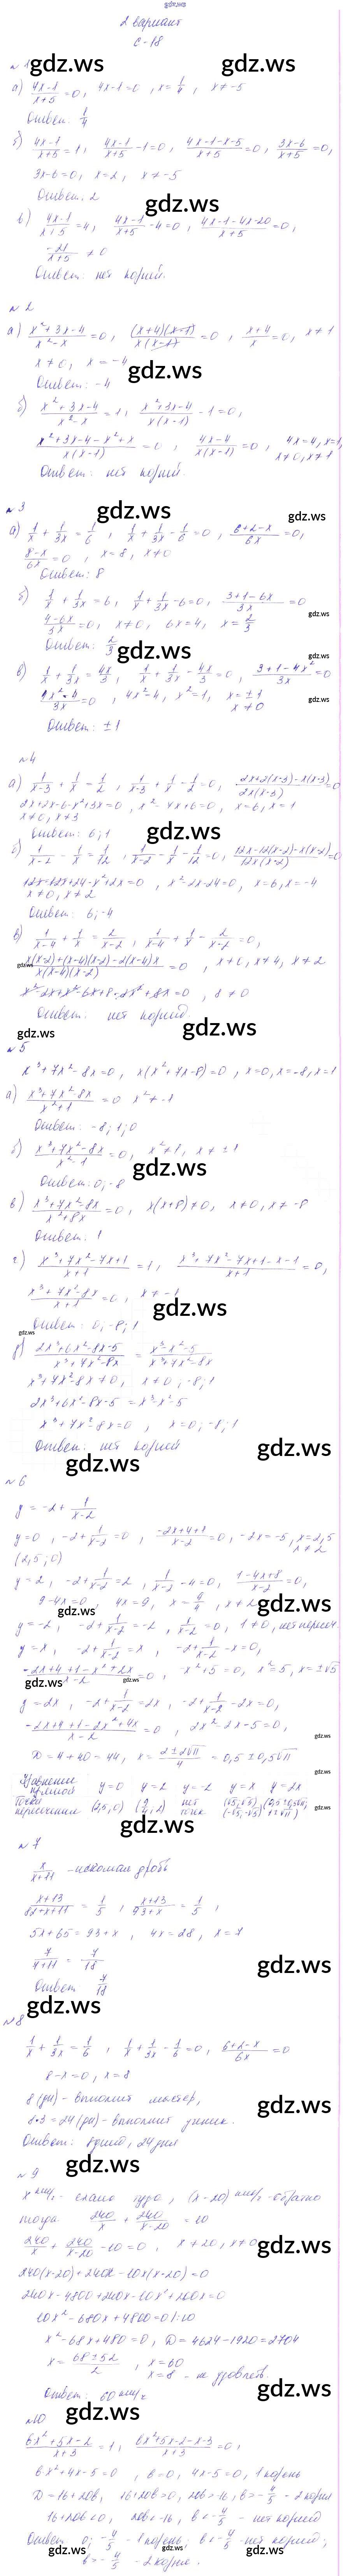 gdz.ws
2 вариант
С-18
№1
gdz.ws gdz.ws
а) (4x-1)/(x+5) = 0, 4x-1=0, x = 1/4, x ≠ -5
Ответ: 1/4
б) (4x-1)/(x+5) = 1, (4x-1)/(x+5) - 1 = 0, (4x-1-x-5)/(x+5) = 0, (3x-6)/(x+5) = 0,
3x-6=0, x=2, x ≠ -5
Ответ: 2
gdz.ws
в) (4x-1)/(x+5) = 4, (4x-1)/(x+5) - 4 = 0, (4x-1-4x-20)/(x+5) = 0,
-21/(x+5) ≠ 0
Ответ: нет корней.
№2
а) (x²+3x-4)/(x²-x) = 0, ((x+4)(x-1))/(x(x-1)) = 0, (x+4)/x = 0, x ≠ 1
x ≠ 0, x = -4
gdz.ws
Ответ: -4
б) (x²+3x-4)/(x²-x) = 1, (x²+3x-4)/(x(x-1)) - 1 = 0,
(x²+3x-4-x²+x)/(x(x-1)) = 0, (4x-4)/(x(x-1)) = 0, 4x=4, x=1,
x≠0, x≠1
Ответ: нет корней
№3
gdz.ws gdz.ws
а) 1/x + 1/3x = 1/6, 1/x + 1/3x - 1/6 = 0, (6+2-x)/6x = 0,
(8-x)/6x = 0, x=8, x≠0
Ответ: 8
б) 1/x + 1/3x = 6, 1/x + 1/3x - 6 = 0, (3+1-6x)/3x = 0
gdz.ws
(4-6x)/3x = 0, x≠0, 6x=4, x = 2/3
Ответ: 2/3
gdz.ws
gdz.ws
в) 1/x + 1/3x = 4x/3, 1/x + 1/3x - 4x/3 = 0, (3+1-4x²)/3x = 0
4x²=4, x²=1, x=±1
x≠0
gdz.ws
Ответ: ±1
№4
а) 1/(x-3) + 1/x = 1/2, 1/(x-3) + 1/x - 1/2 = 0, (2x+2(x-3)-x(x-3))/(2x(x-3)) = 0
x=6, x=1
x≠0, x≠3
Ответ: 6; 1
gdz.ws
б) 1/(x-2) - 1/x = 1/12, 1/(x-2) - 1/x - 1/12 = 0, (12x-12(x-2)-x(x-2))/(12x(x-2)) = 0
12x-12x+24-x²+2x=0, x²-2x-24=0, x=6, x=-4
x≠0, x≠2
Ответ: 6; -4
в) 1/(x-4) + 1/x = 2/(x-2), 1/(x-4) + 1/x - 2/(x-2) = 0,
gdz.ws
(x(x-2)+(x-4)(x-2)-2(x-4)x)/(x(x-4)(x-2)) = 0, x≠0, x≠4, x≠2
x²-2x+x²-6x+8-2x²+8x=0, 8≠0
Ответ: нет корней.
gdz.ws gdz.ws
№5
x³+7x²-8x=0, x(x²+7x-8)=0, x=0, x=-8, x=1
а) (x³+7x²-8x)/(x²+1) = 0 x²≠-1
Ответ: -8; 1; 0
б) (x³+7x²-8x)/(x²-1) = 0, x²≠1, x≠±1
gdz.ws
Ответ: 0; -8
в) (x³+7x²-8x)/(x²+8x) = 0, x(x+8)≠0, x≠0, x≠-8
Ответ: 1
г) (x³+7x²-7x+1)/(x+1) = 1, (x³+7x²-7x+1-x-1)/(x+1) = 0,
(x³+7x²-8x)/(x+1) = 0, x≠-1
gdz.ws
Ответ: 0; -8; 1
gdz.ws
д) (2x³+6x²-8x-5)/(x³+7x²-8x) = (x³-x²-5)/(x³+7x²-8x)
x³+7x²-8x≠0, x≠0; -8; 1
2x³+6x²-8x-5=x³-x²-5
x³+7x²-8x=0, x=0; -8; 1
Ответ: нет корней
gdz.ws
gdz.ws
№6
y = -2 + 1/(x-2)
y=0, -2+1/(x-2)=0, (-2x+4+1)/(x-2)=0, -2x=-5, x=2,5
x≠2
(2,5; 0)
y=2, -2+1/(x-2)=2, 1/(x-2)-4=0, (1-4x+8)/(x-2)=0,
9-4x=0, 4x=9, x=9/4, x≠2
gdz.ws
gdz.ws
y=-2, -2+1/(x-2)=-2, 1/(x-2)=0, 1≠0, нет пересеч.
y=x, -2+1/(x-2)=x, -2+1/(x-2)-x=0,
(-2x+4+1-x²+2x)/(x-2)=0, -x²+5=0, x²=5, x=±√5
gdz.ws gdz.ws
y=2x, -2+1/(x-2)=2x, -2+1/(x-2)-2x=0,
(-2x+4+1-2x²+4x)/(x-2)=0, 2x²-2x-5=0,
gdz.ws
D=4+40=44, x=(2±2√11)/4=0,5±0,5√11
gdz.ws
Уравнение прямой y=0 y=2 y=-2 y=x y=2x
Точки пересечения (2,5; 0) (9/4; 2) нет точек (√5; √5) (-√5; -√5) (0,5±0,5√11; 1±√11)
gdz.ws
gdz.ws
№7
x/(x+11) - искомая дробь
(x+13)/(82+x+11) = 1/5, (x+13)/(93+x) = 1/5,
5x+65=93+x, 4x=28, x=7
7/(7+11) = 7/18
gdz.ws
Ответ: 7/18
gdz.ws
№8
1/x + 1/3x = 1/6, 1/x + 1/3x - 1/6 = 0, (6+2-x)/6x = 0
8-x=0, x=8
8(дн) - выполнит мастер,
gdz.ws
8·3=24(дн) - выполнит ученик.
Ответ: 8 дней, 24 дня
gdz.ws
№9
x км/ч - ехало туда, (x-20) км/ч - обратно
тогда 240/x + 240/(x-20) = 10
240/x + 240/(x-20) - 10 = 0, x≠20, x≠0
gdz.ws
240(x-20)+240x-10x(x-20)=0
240x-4800+240x-10x²+200x=0
10x²-680x+4800=0 |:10
x²-68x+480=0, D=4624-1920=2704
x=(68±52)/2, x=60
x=8 - не удовлетв.
gdz.ws
Ответ: 60 км/ч
gdz.ws
№10
(6x²+5x-2)/(x+3) = 1, (6x²+5x-2-x-3)/(x+3) = 0,
6x²+4x-5=0, 6=0, 4x-5=0, 1 корень
D=16+20b, 16+20b>0, 20b>-16, b>-4/5 - 2 корня
16+20b<0, 20b<-16, b<-4/5 - нет корней
Ответ: 0; -4/5 - 1 корень; b<-4/5 - нет корней;
gdz.ws gdz.ws gdz.ws
b>-4/5 - 2 корня.